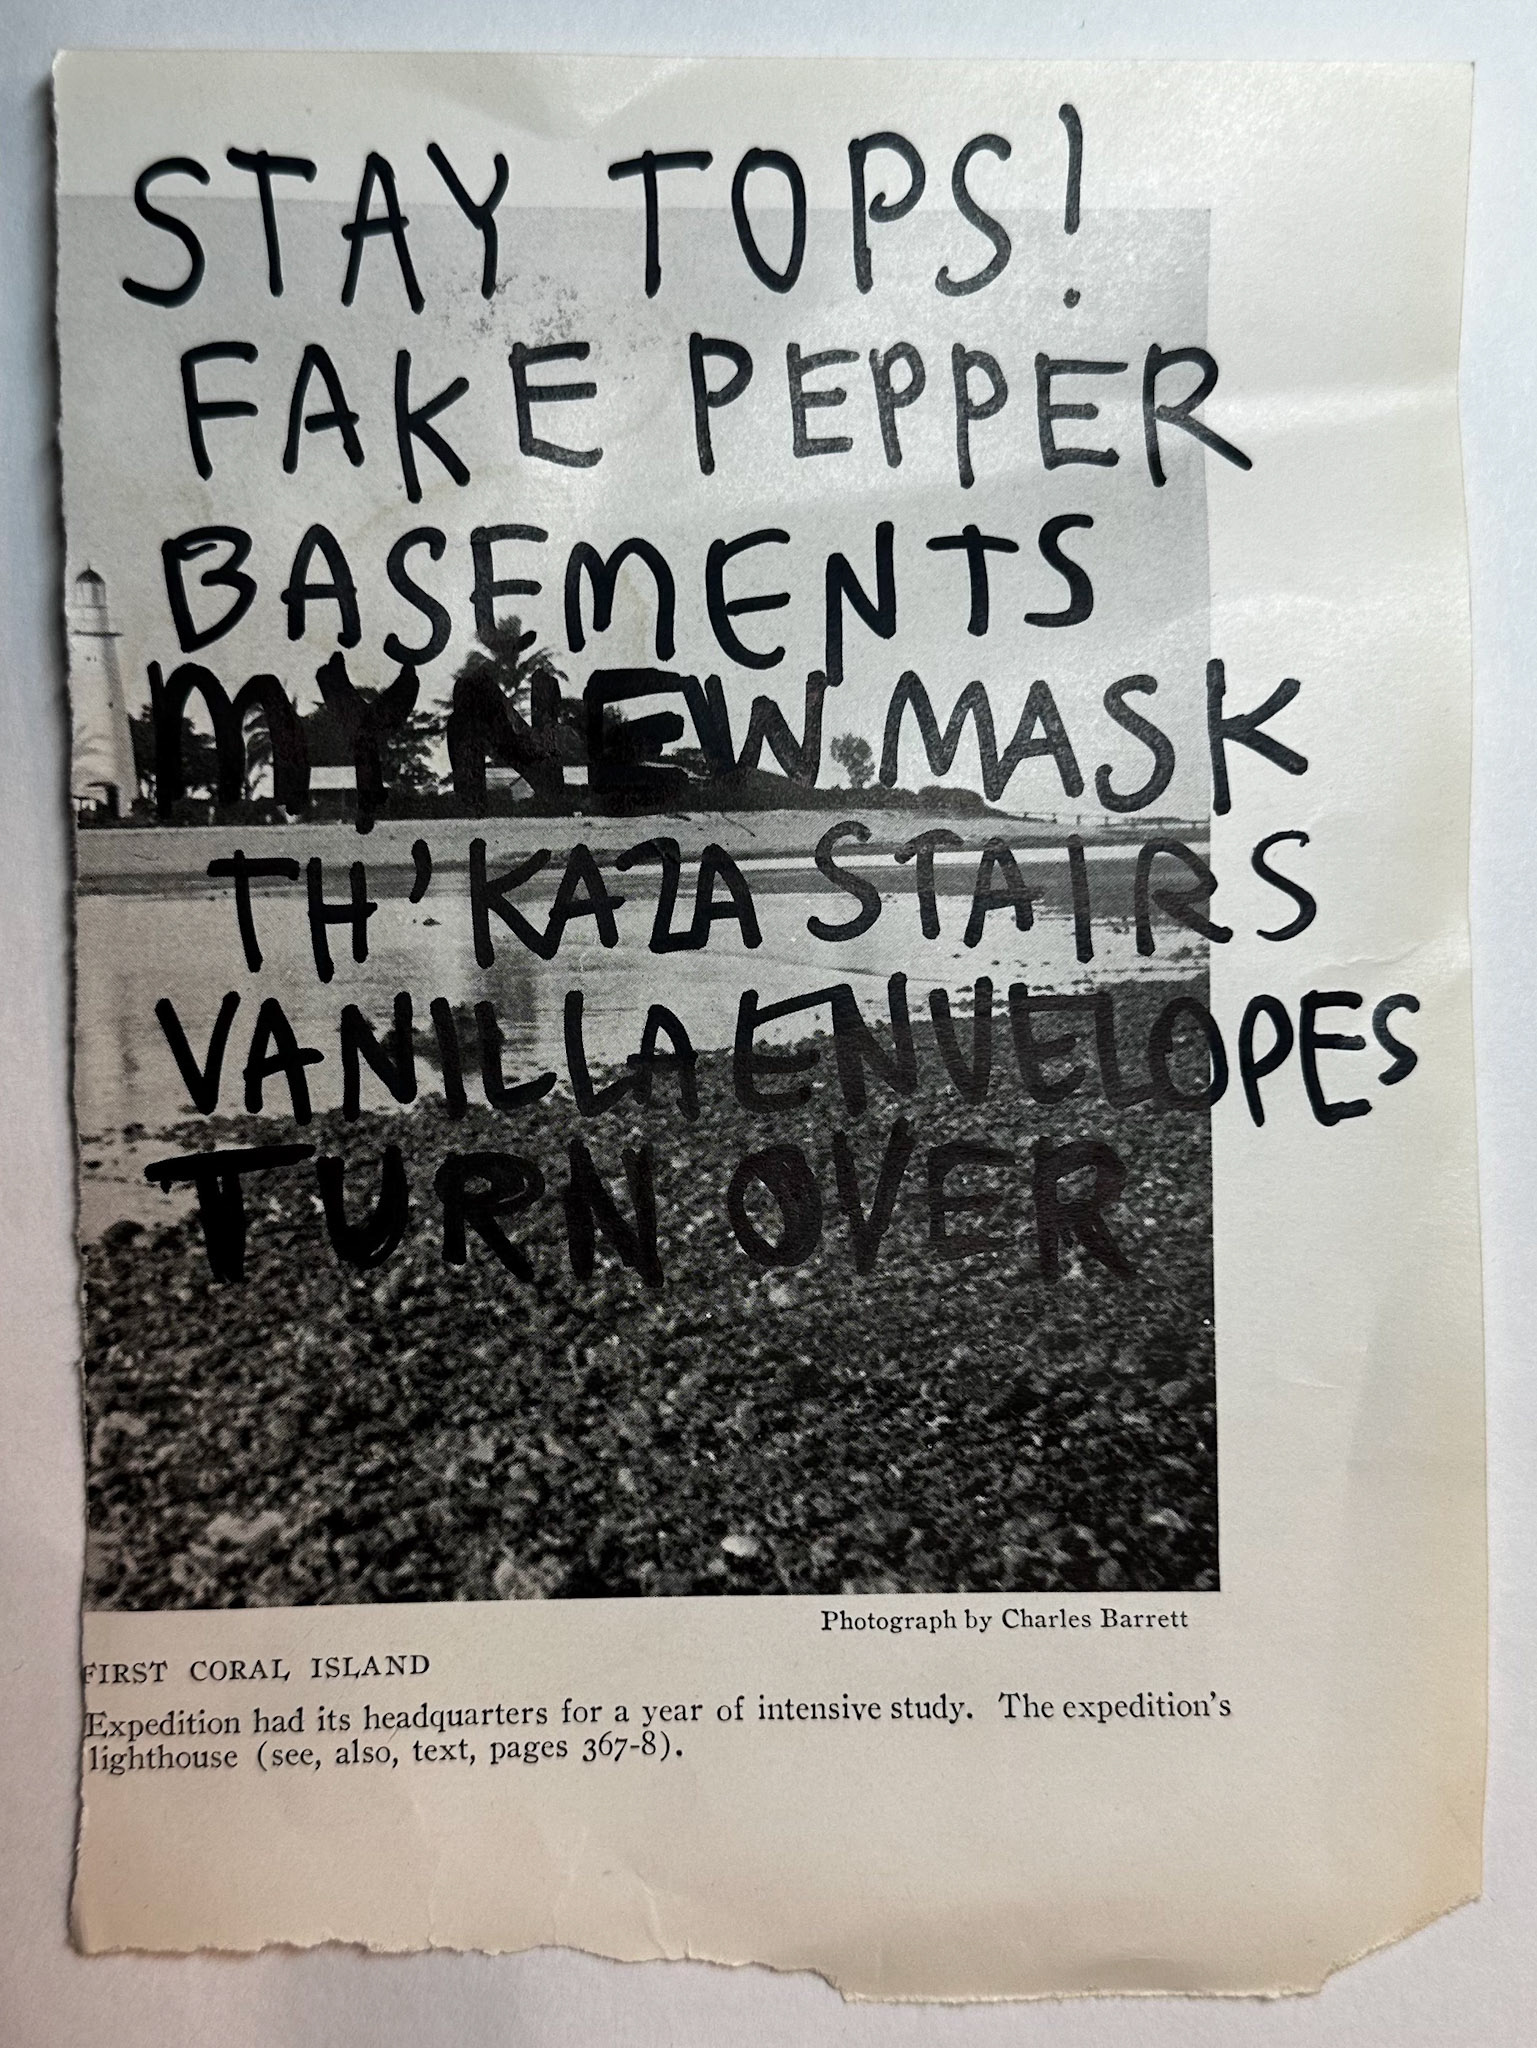 STAY TOPS!
FAKE PEPPER
BASEMENTS
MY NEW MASK
TH'KAZA STAIRS
VANILLA ENVELOPES
TURN OVER
Photograph by Charles Barrett
FIRST CORAL ISLAND
Expedition had its headquarters for a year of intensive study. The expedition's
lighthouse (see, also, text, pages 367-8).